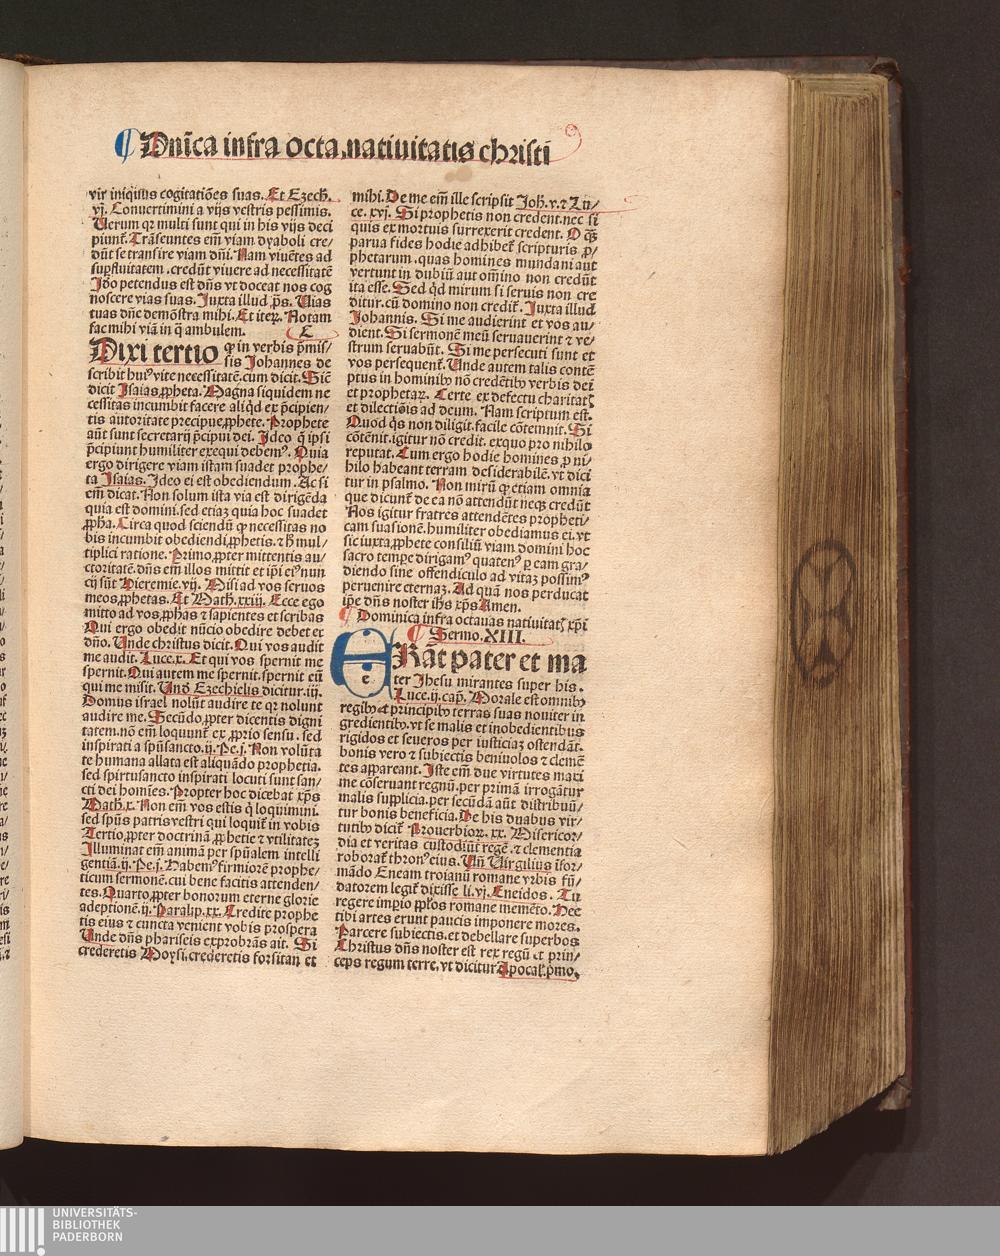 ¶ Dnīca infra octa.natiuitatis christi
vir iniquus cogitatiões suas. Et Ezech.
vj. Conuertimini a vijs vestris pessimis.
Uerum qꝛ multi sunt qui in his vijs deci
piunt᷑. Trãseuntes em̄ viam dyaboli cre/
dūt se transire viam dn̄i. Nam viuētes ad
suꝑfluitatem .credūt viuere ad necessitatē
Idō petendus est dn̄s vt doceat nos cog
noscere vias suas. Iuxta illud ṗs. Uias
tuas dn̄e demōstra mihi. Et iteꝝ. Notam
fac mihi viā in q̄ ambulem. C
Dixi tertio ꝙ in verbis p̄mis/
sis Johannes de
scribit huiꝰ vite necessitatē.cum dicit. Sic̄
dicit Isaias ꝓpheta. Magna siquidem ne
cessitas incumbit facere aliq̇d ex p̄cipien/
tis autoritate precipue ꝓphete. Prophete
aūt sunt secretarij p̄cipui dei. Ideo q̇ ipsi
p̄cipiunt humiliter exequi debemꝰ. Quia
ergo dirigere viam istam suadet prophe/
ta Isaias. Ideo ei est obediendum. Ac si
em̄ dicat. Non solum ista via est dirigēda
quia est domini.sed etiaꝫ quia hoc suadet
ꝓph̄a. Circa quod sciendū ꝙ necessitas no
bis incumbit obediendi ꝓphetis.⁊ h̄ mul/
tiplici ratione. Primo ꝓpter mittentis au/
ctoritatē.dn̄s em̄ illos mittit et ip̄i eiꝰ nun
cij sūt Hieremie.vij. Misi ad vos seruos
meos ꝓphetas. Et Math.xxiij. Ecce ego
mitto ad vos ꝓph̄as ⁊ sapientes et scribas
Qui ergo obedit nūcio obedire debet et
dn̄o. Unde christus dicit. Qui vos audit
me audit. Luce.x. Et qui vos spernit me
spernit. Qui autem me spernit.spernit eū
qui me misit. Unḋ Ezechielis dicitur.iij.
Domus israel nolūt audire te qꝛ nolunt
audire me. Secūdo ꝓpter dicentis digni
tatem.nō em̄ loquunt᷑ ex ꝓprio sensu . sed
inspirati a spūsancto.ij. Pe.j. Non volūta
te humana allata est aliquādo prophetia.
sed spiritusancto inspirati locuti sunt san/
cti dei homīes. Propter hoc dicebat xp̄s
Math.x. Non em̄ vos estis q̇ loquimini.
sed spūs patris vestri qui loquit᷑ in vobis
Tertio ꝓpter doctrinā ꝓphetie ⁊ vtilitateꝫ
Illuminat em̄ animā per spūalem intelli
gentiā.ij. Pe.j. Habemꝰ firmiorē prophe/
ticum sermonē.cui bene facitis attenden/
tes. Quarto ꝓpter bonorum eterne glorie
adeptionē.ij. Paralip.xx. Credite prophe
tis eius ⁊ cuncta venient vobis prospera
Unde dn̄s phariseis exprobrās ait. Si
crederetis Moysi.crederetis forsitan et
mihi. De me em̄ ille scripsit Joh̄.v.⁊ Lu/
ce.xvj. Si prophetis non credent.nec si
quis ex mortuis surrexerit credent. O q̄ꝫ
parua fides hodie adhibet᷑ scripturis ꝓ/
phetarum .quas homines mundani aut
vertunt in dubiū aut om̄ino non credūt
ita esse. Sed q̇d mirum si seruis non cre
ditur.cū domino non credit᷑. Iuxta illud
Johannis. Si me audierint et vos au/
dient. Si sermonē meū seruauerint ⁊ ve/
strum seruabūt. Si me persecuti sunt et
vos persequent᷑. Unde autem talis contē
ptus in hominibꝰ nō credētibꝰ verbis dei
et prophetaꝝ. Certe ex defectu charitatꝭ
et dilectiōis ad deum. Nam scriptum est.
Quod q̇s non diligit.facile cōtemnit. Si
cōtēnit.igitur nō credit. ex quo pro nihilo
reputat. Cum ergo hodie homines ꝓ ni/
hilo habeant terram desiderabilē.vt dici
tur in psalmo. Non mirū ꝙ etiam omnia
que dicunt᷑ de ea nō attendūt neqꝫ credūt
Nos igitur fratres attendētes propheti/
cam suasionē.humiliter obediamus ei.vt
sic iuxta ꝓphete consiliū viam domini hoc
sacro tempe dirigamꝰ quatenꝰ ꝑ eam gra/
diendo sine offendiculo ad vitaꝫ possimꝰ
peruenire eternaꝫ. Ad quā nos perducat
ip̄e dn̄s noster ih̄s xp̄s Amen.
¶ Dominica infra octauas natiuitatꝭ xp̄i
¶ Sermo. XIII.
ERāt pater et ma
ter Jhesu mirantes super his.
Luce.ij.cap̄. Morale est omnibꝰ
regibꝰ et principibꝰ terras suas nouiter in
gredientibꝰ.vt se malis et inobedientibus
rigidos et seueros per iusticiaꝫ ostendāt.
bonis vero ⁊ subiectis beniuolos ⁊ clemē
tes appareant. Iste em̄ due virtutes maxi
me cōseruant regnū.per primā irrogātur
malis supplicia.per secūdā aūt distribuū/
tur bonis beneficia. De his duabus vir/
tutibꝰ dicit᷑ Prouerbioꝝ.xx. Misericor/
dia et veritas custodiūt regē .⁊ clementia
roborat᷑ thronꝰ eius. Un̄ Uirgilius īfor/
mādo Eneam troianū romane vrbis fū/
datorem legit᷑ dixisse li.vj. Eneidos. Tu
regere impio ppl̄os romane memēto. Hec
tibi artes erunt paucis imponere mores.
Parcere subiectis.et debellare superbos
Christus dn̄s noster est rex regū et prin/
ceps regum terre.vt dicitur Apocal̄.p̄mo.
UNIVERSITÄTS-
BIBLIOTHEK
PADERBORN